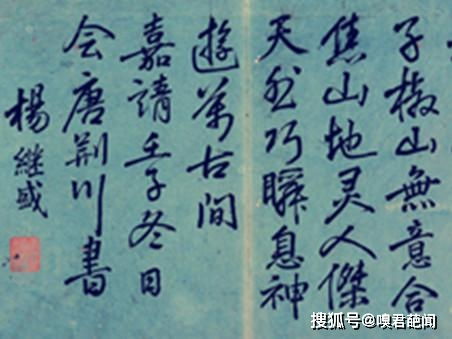 子椒山無意合
焦山地灵人傑
天然巧瞬息神
遊萬古間
嘉靖壬子冬日
会唐荆川書
楊继盛
搜狐号@嗅君葩闻